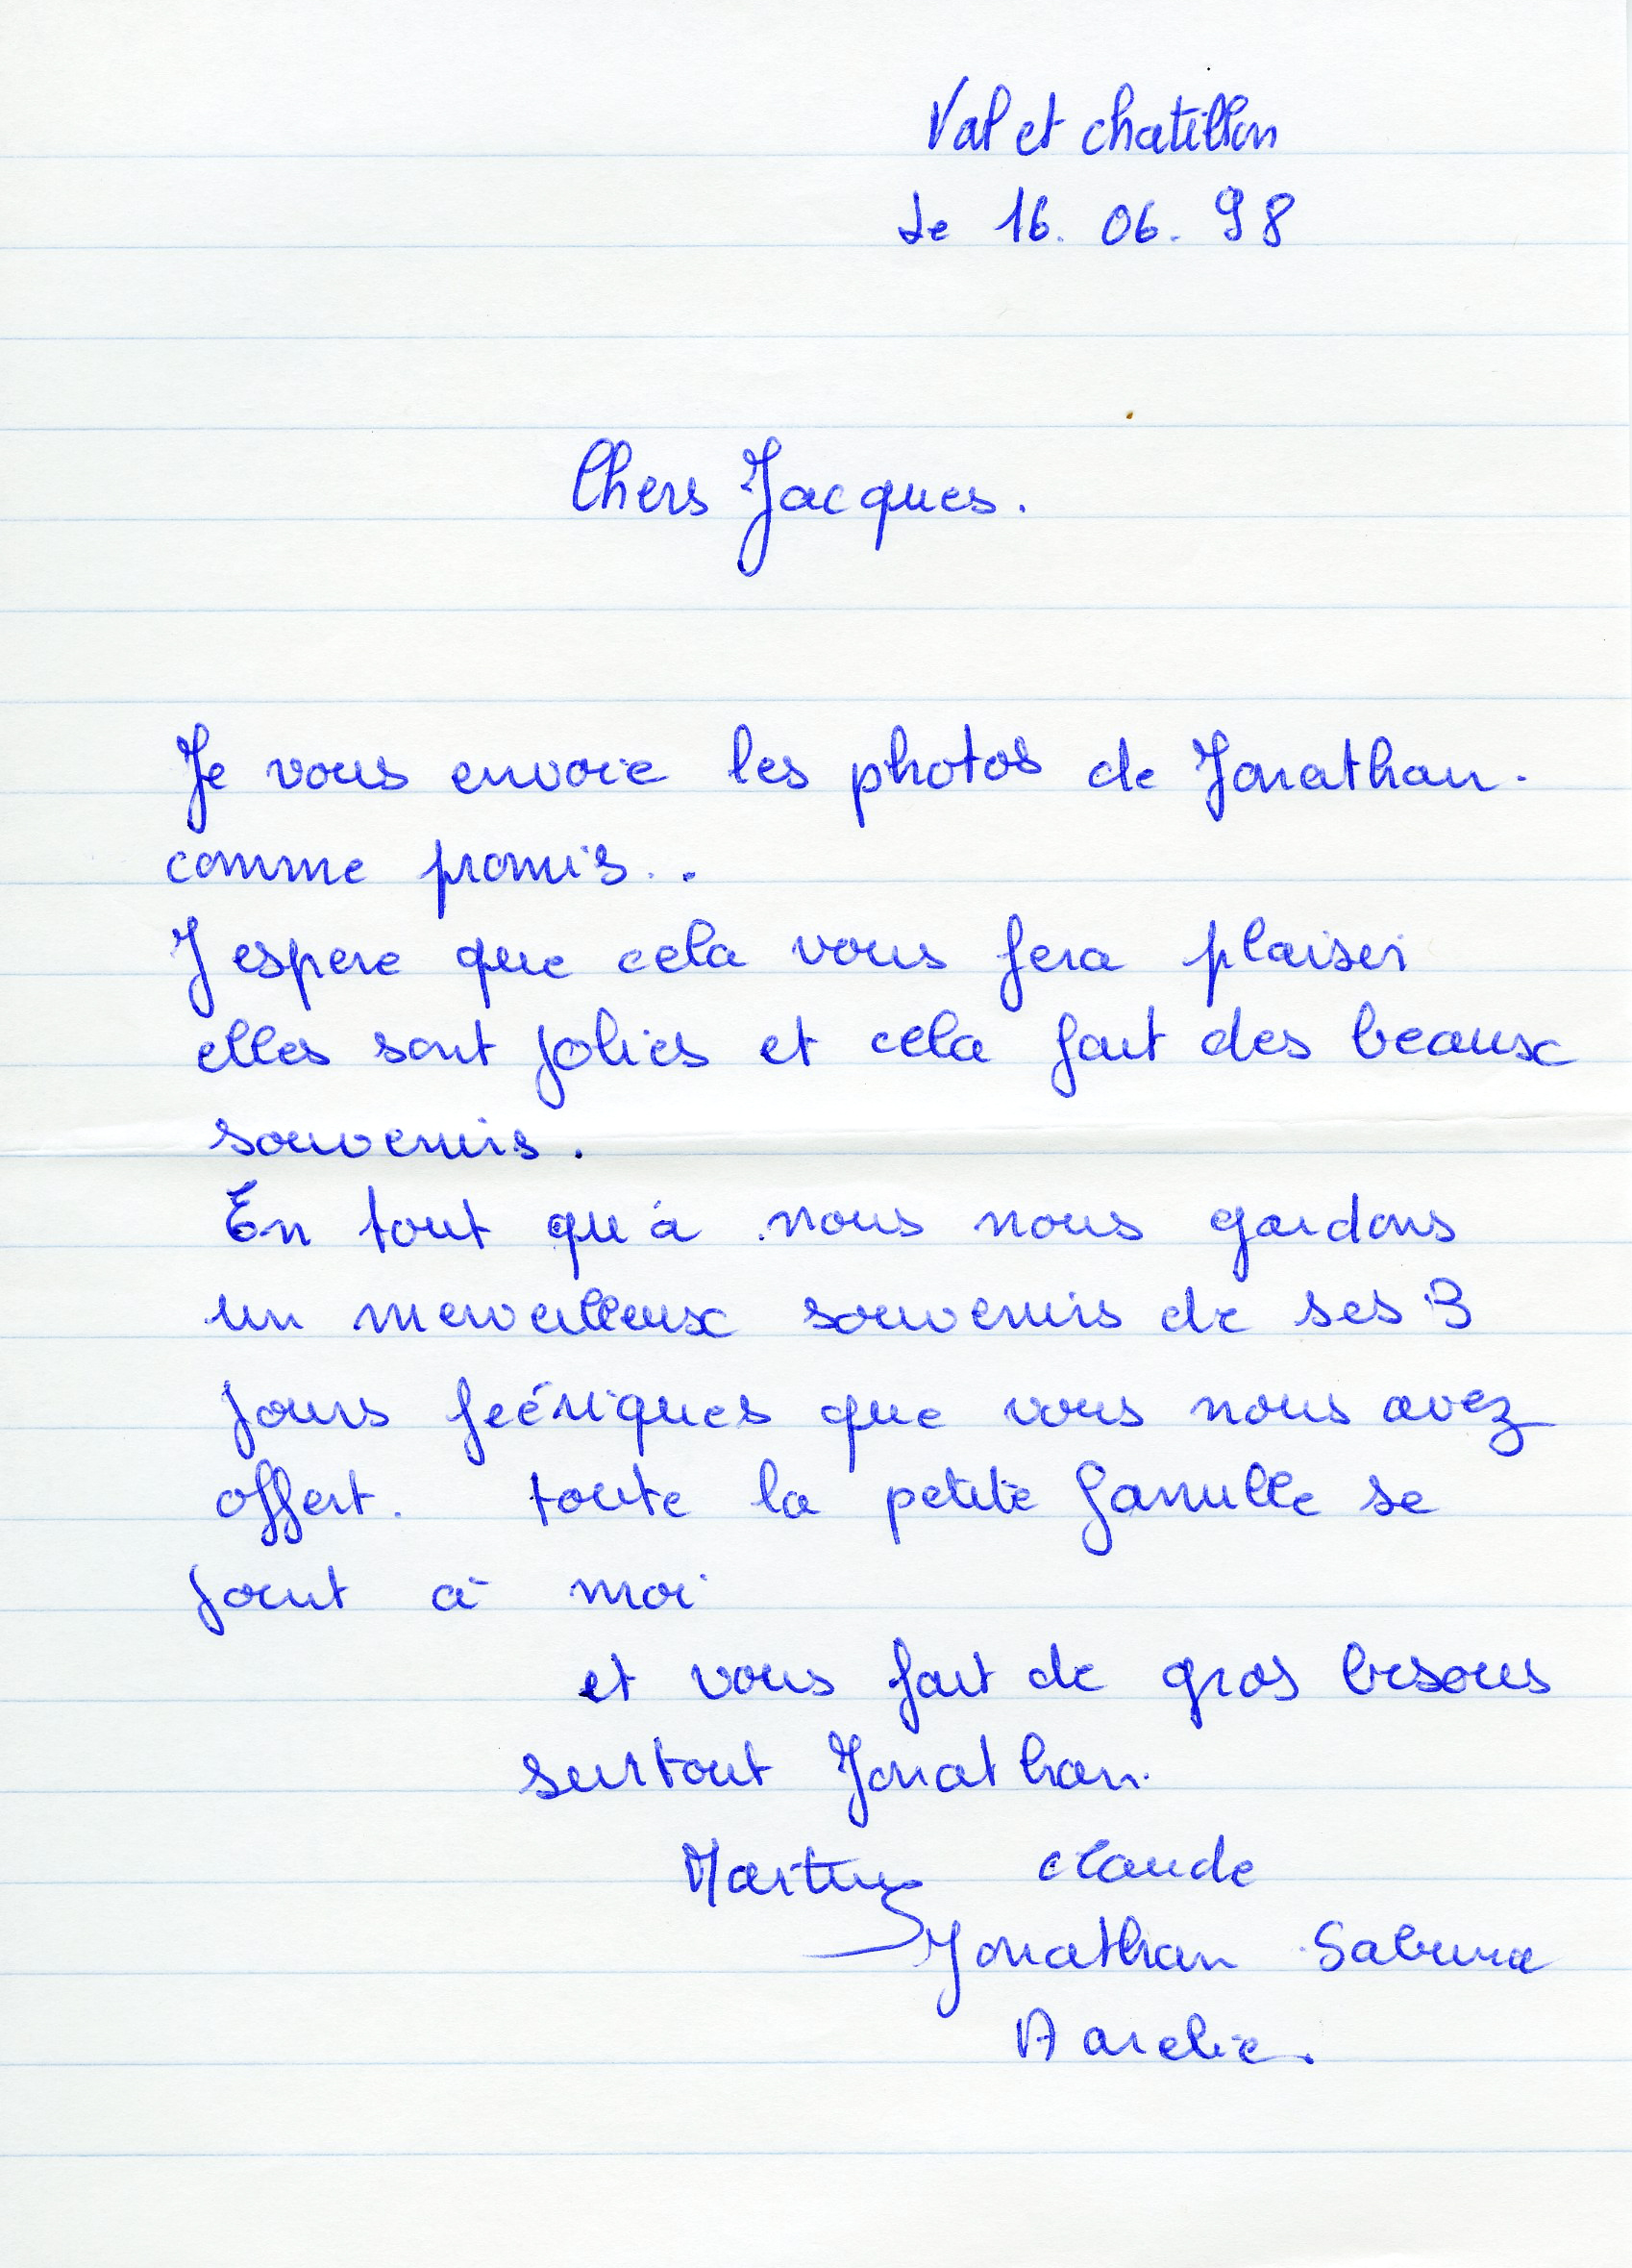 Val et chatillon
Le 16. 06. 98
Chers Jacques.
Je vous envoie les photos de Jonathan.
comme promis..
J espere que cela vous fera plaisir
elles sont jolies et cela fait des beaux
souvenirs.
En tout qu'à nous nous gardons
un merveilleux souvenirs de ses 3
jours feériques que vous nous avez
offert. toute la petite famille se
joint à moi
et vous fait de gros bisous
surtout Jonathan.
Martine claude
Jonathan Sabrina
Aurelie.